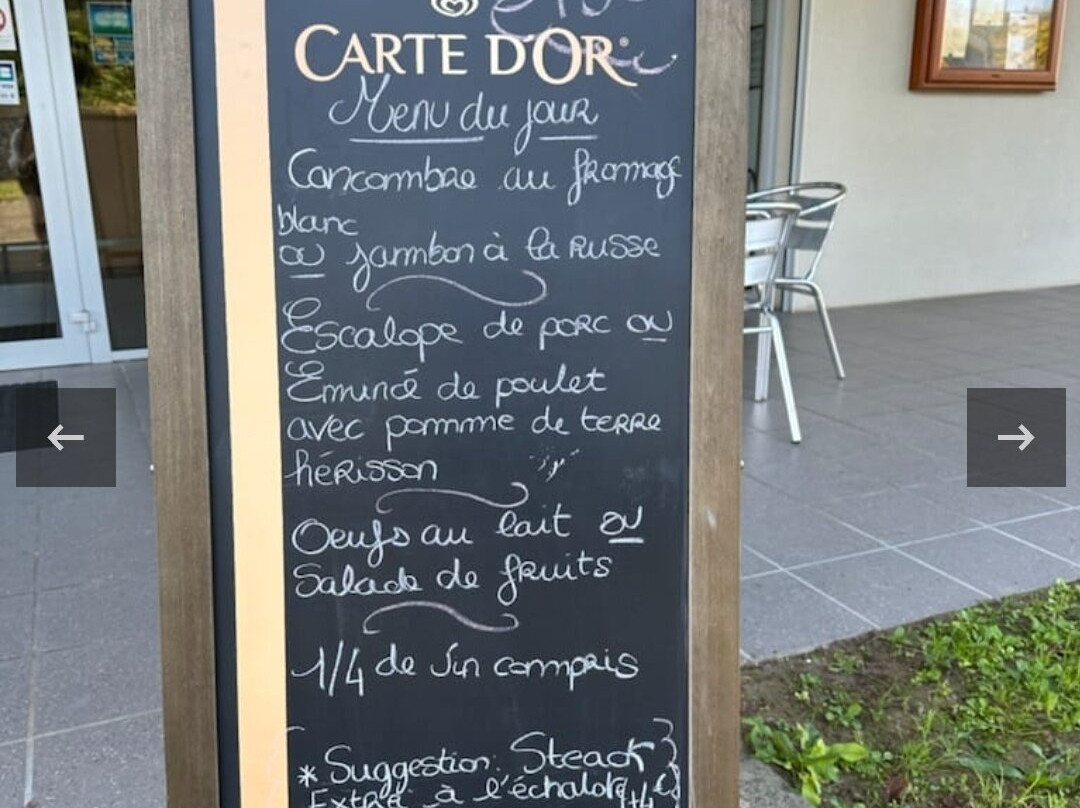 CARTE D'OR
Menu du jour
Concombre au fromage
blanc
ou jambon à la russe
Escalope de porc ou
Émincé de poulet
avec pomme de terre
hérisson
Oeufs au lait ou
Salade de fruits
1/4 de vin compris
* Suggestion: Steack
Extra à l'échalote